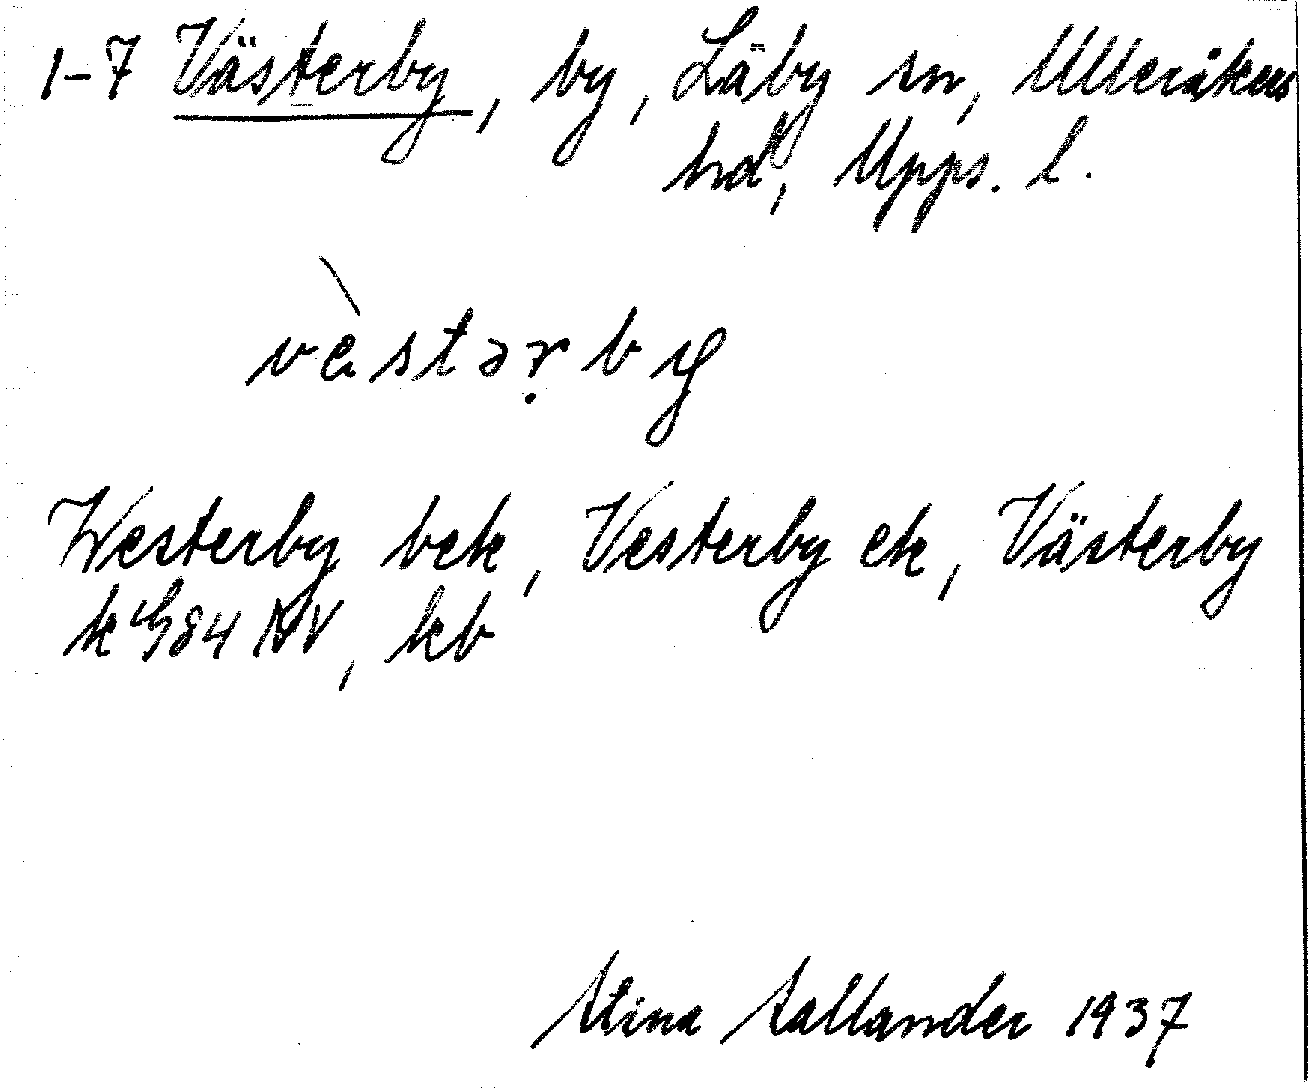 1-7 Västerby, by, Läby sn, Ulleråkers
hd, Upps. l.
vèstərby
Westerby bek, Vesterby ek, Västerby
k G84 NV, kb
Stina Sallander 1937